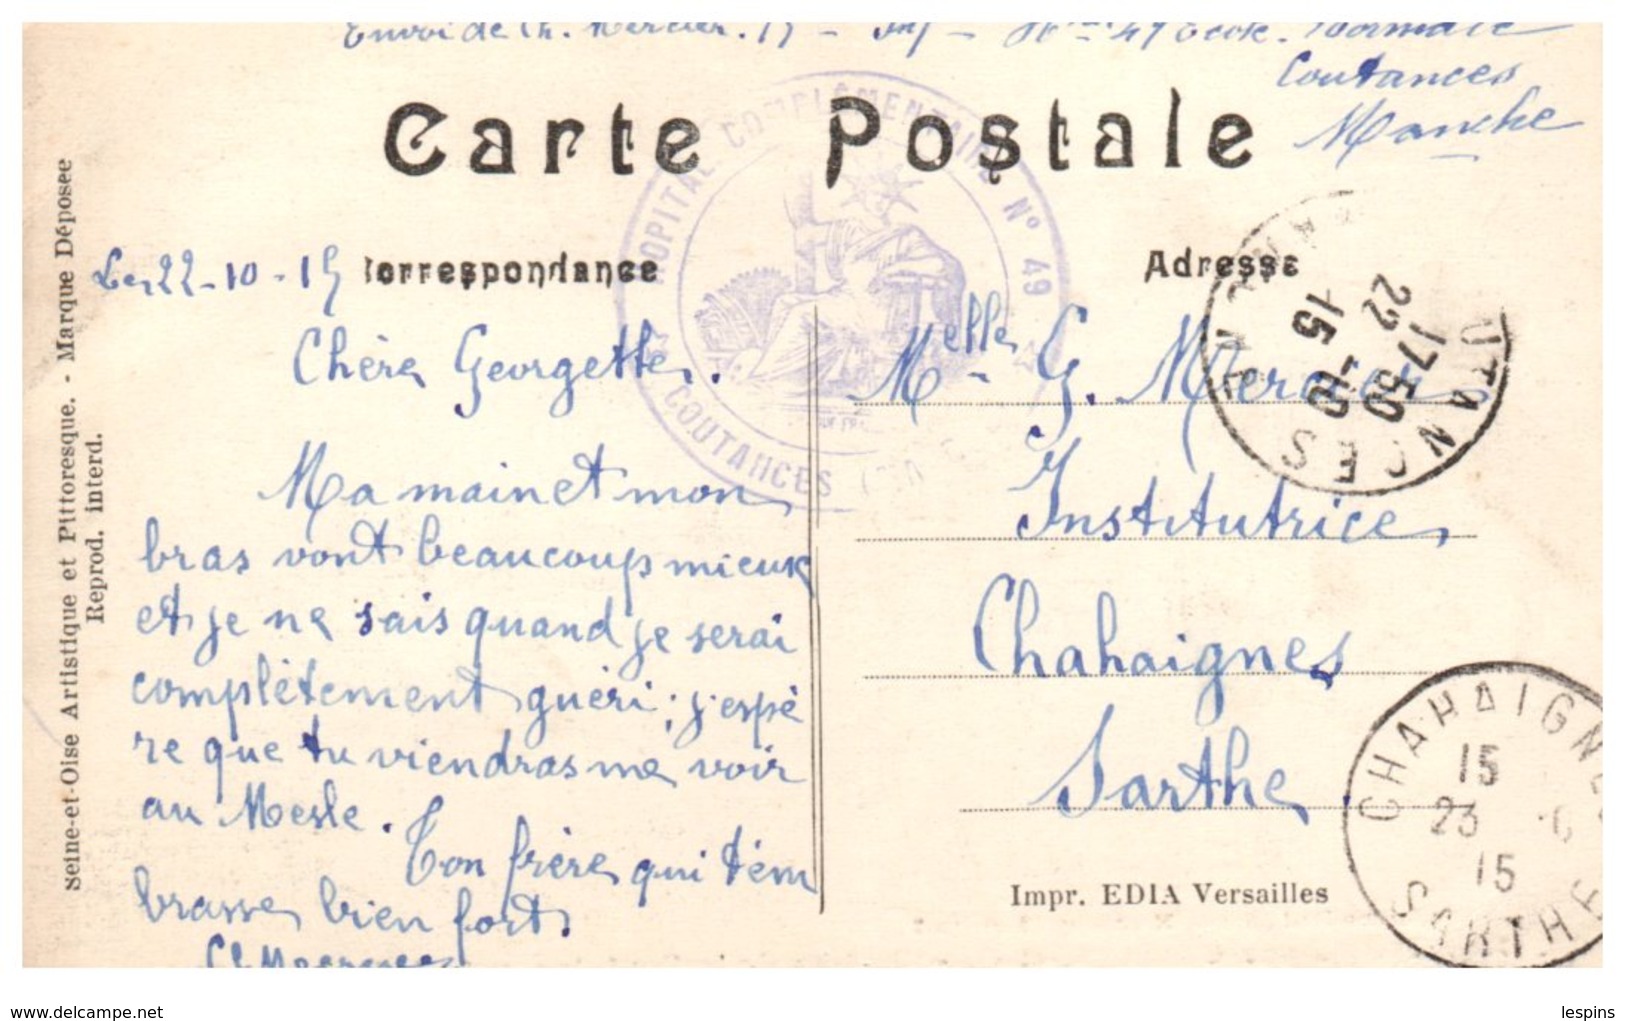 Envoi de Ch. Mercier. Inf - Hal 49 Ecole. Normale
Coutances
Manche
Carte Postale
HOPITAL COMPLEMENTAIRE N° 49
COUTANCES
Le 22-10-15
Correspondance
Adresse
COUTANCES
MANCHE
17 50
22 -10
15
Chère Georgette.
Ma main et mon
bras vont beaucoup mieux
et je ne sais quand je serai
complètement guéri ; j'espè
re que tu viendras me voir
au Mesle.
Ton frère qui t'em
brasse bien fort.
Ch Mercier
Melle G. Mercier
Institutrice
Chahaignes
Sarthe
CHAHAIGNES
15
23
15
SARTHE
Impr. EDIA Versailles
Seine-et-Oise Artistique et Pittoresque. - Marque Déposee
Reprod. interd.
www.delcampe.net
lespins